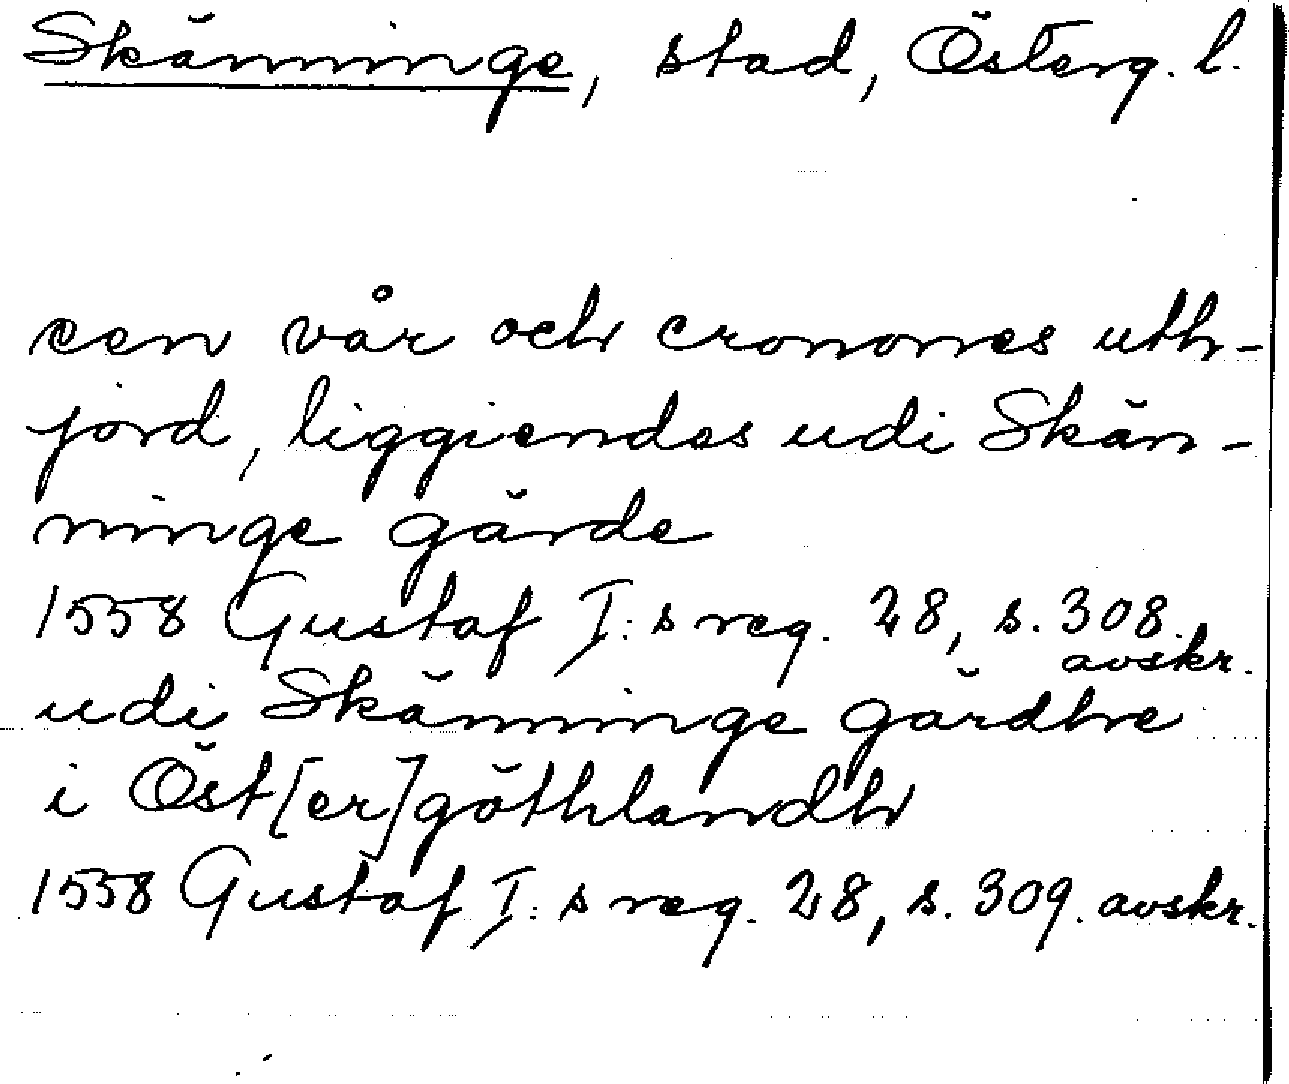 Skänninge, stad, Österg. l.
een vår och cronones uth-
jord, liggiendes udi Skän-
ninge gärde
1558 Gustaf I:s reg. 28, s. 308.
avskr.
udi Skänninge gärdhe
i Öst[er]göthlandh
1558 Gustaf I:s reg. 28, s. 309. avskr.